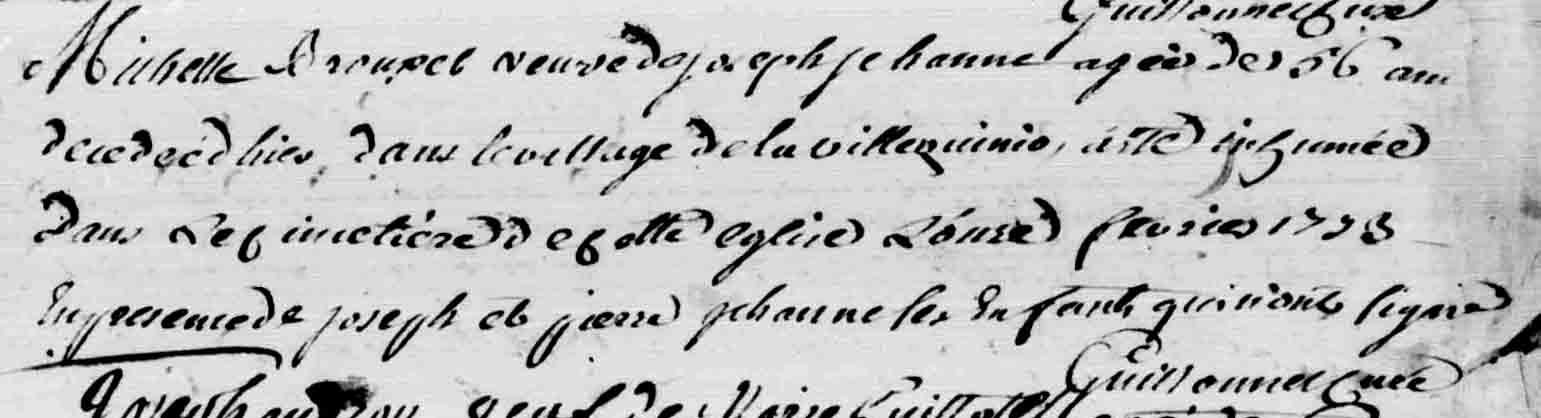 Guillonnet
Michelle Brouxel veuve de joseph jehanne agée de 56 ans
decedeé d hier, dans le village de la villequinio, a été inhumée
dans le cimetiere de cette eglise L'onze fevrier 1773
En presence de joseph et pierre jehanne ses Enfants qui n'ont signé
Guillonnet curé
joseph veuf de Marie Guillot